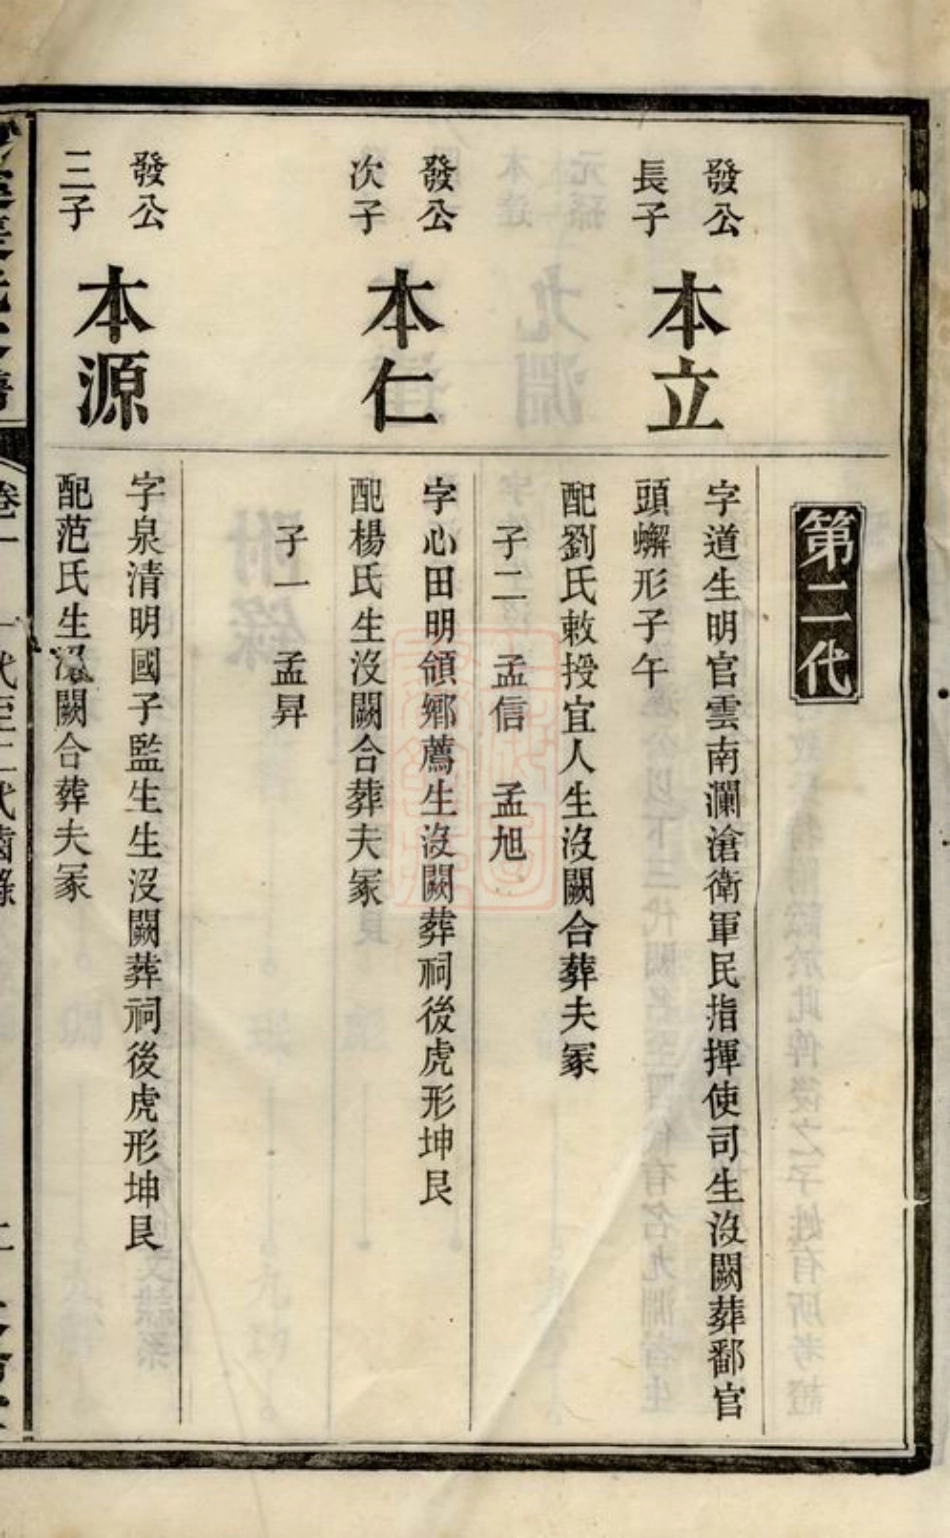 第二代
發公
長子
本立
字道生明官雲南瀾滄衛軍民指揮使司生沒闕葬鄱官
頭蠏形子午
配劉氏敕授宜人生沒闕合葬夫冢
子二 孟信 孟旭
發公
次子
本仁
字心田明領鄉薦生沒闕葬祠後虎形坤艮
配楊氏生沒闕合葬夫冢
子一 孟昇
發公
三子
本源
字泉清明國子監生生沒闕葬祠後虎形坤艮
配范氏生沒闕合葬夫冢